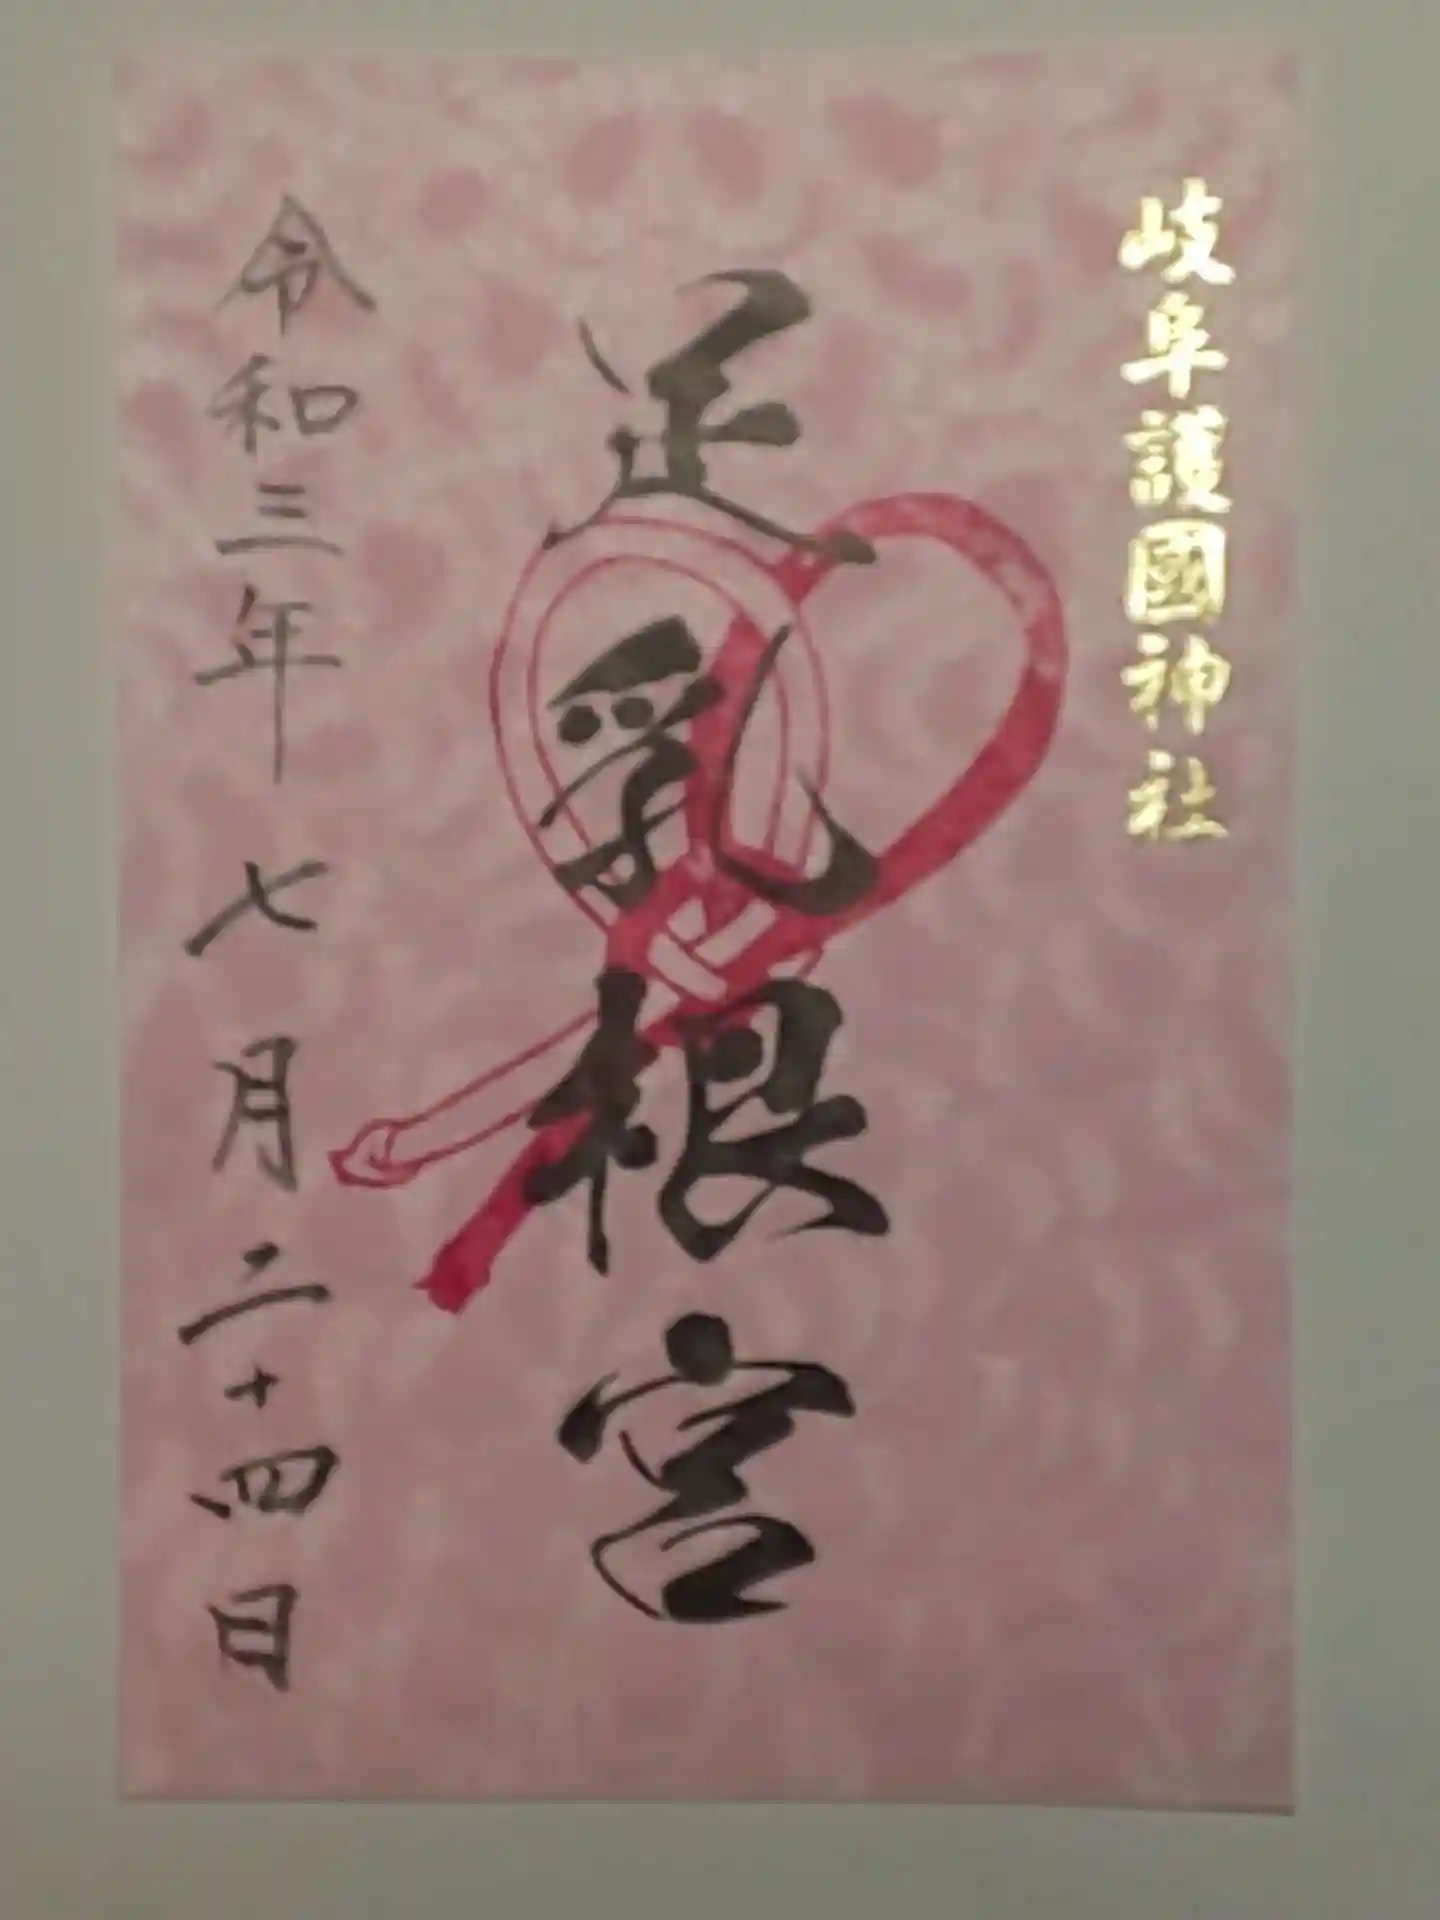 岐阜護國神社
足乳根宮
令和三年七月二十四日